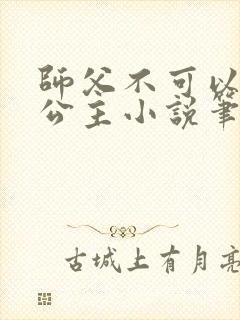 師父不可以
公主小說筆
古城上有月亮